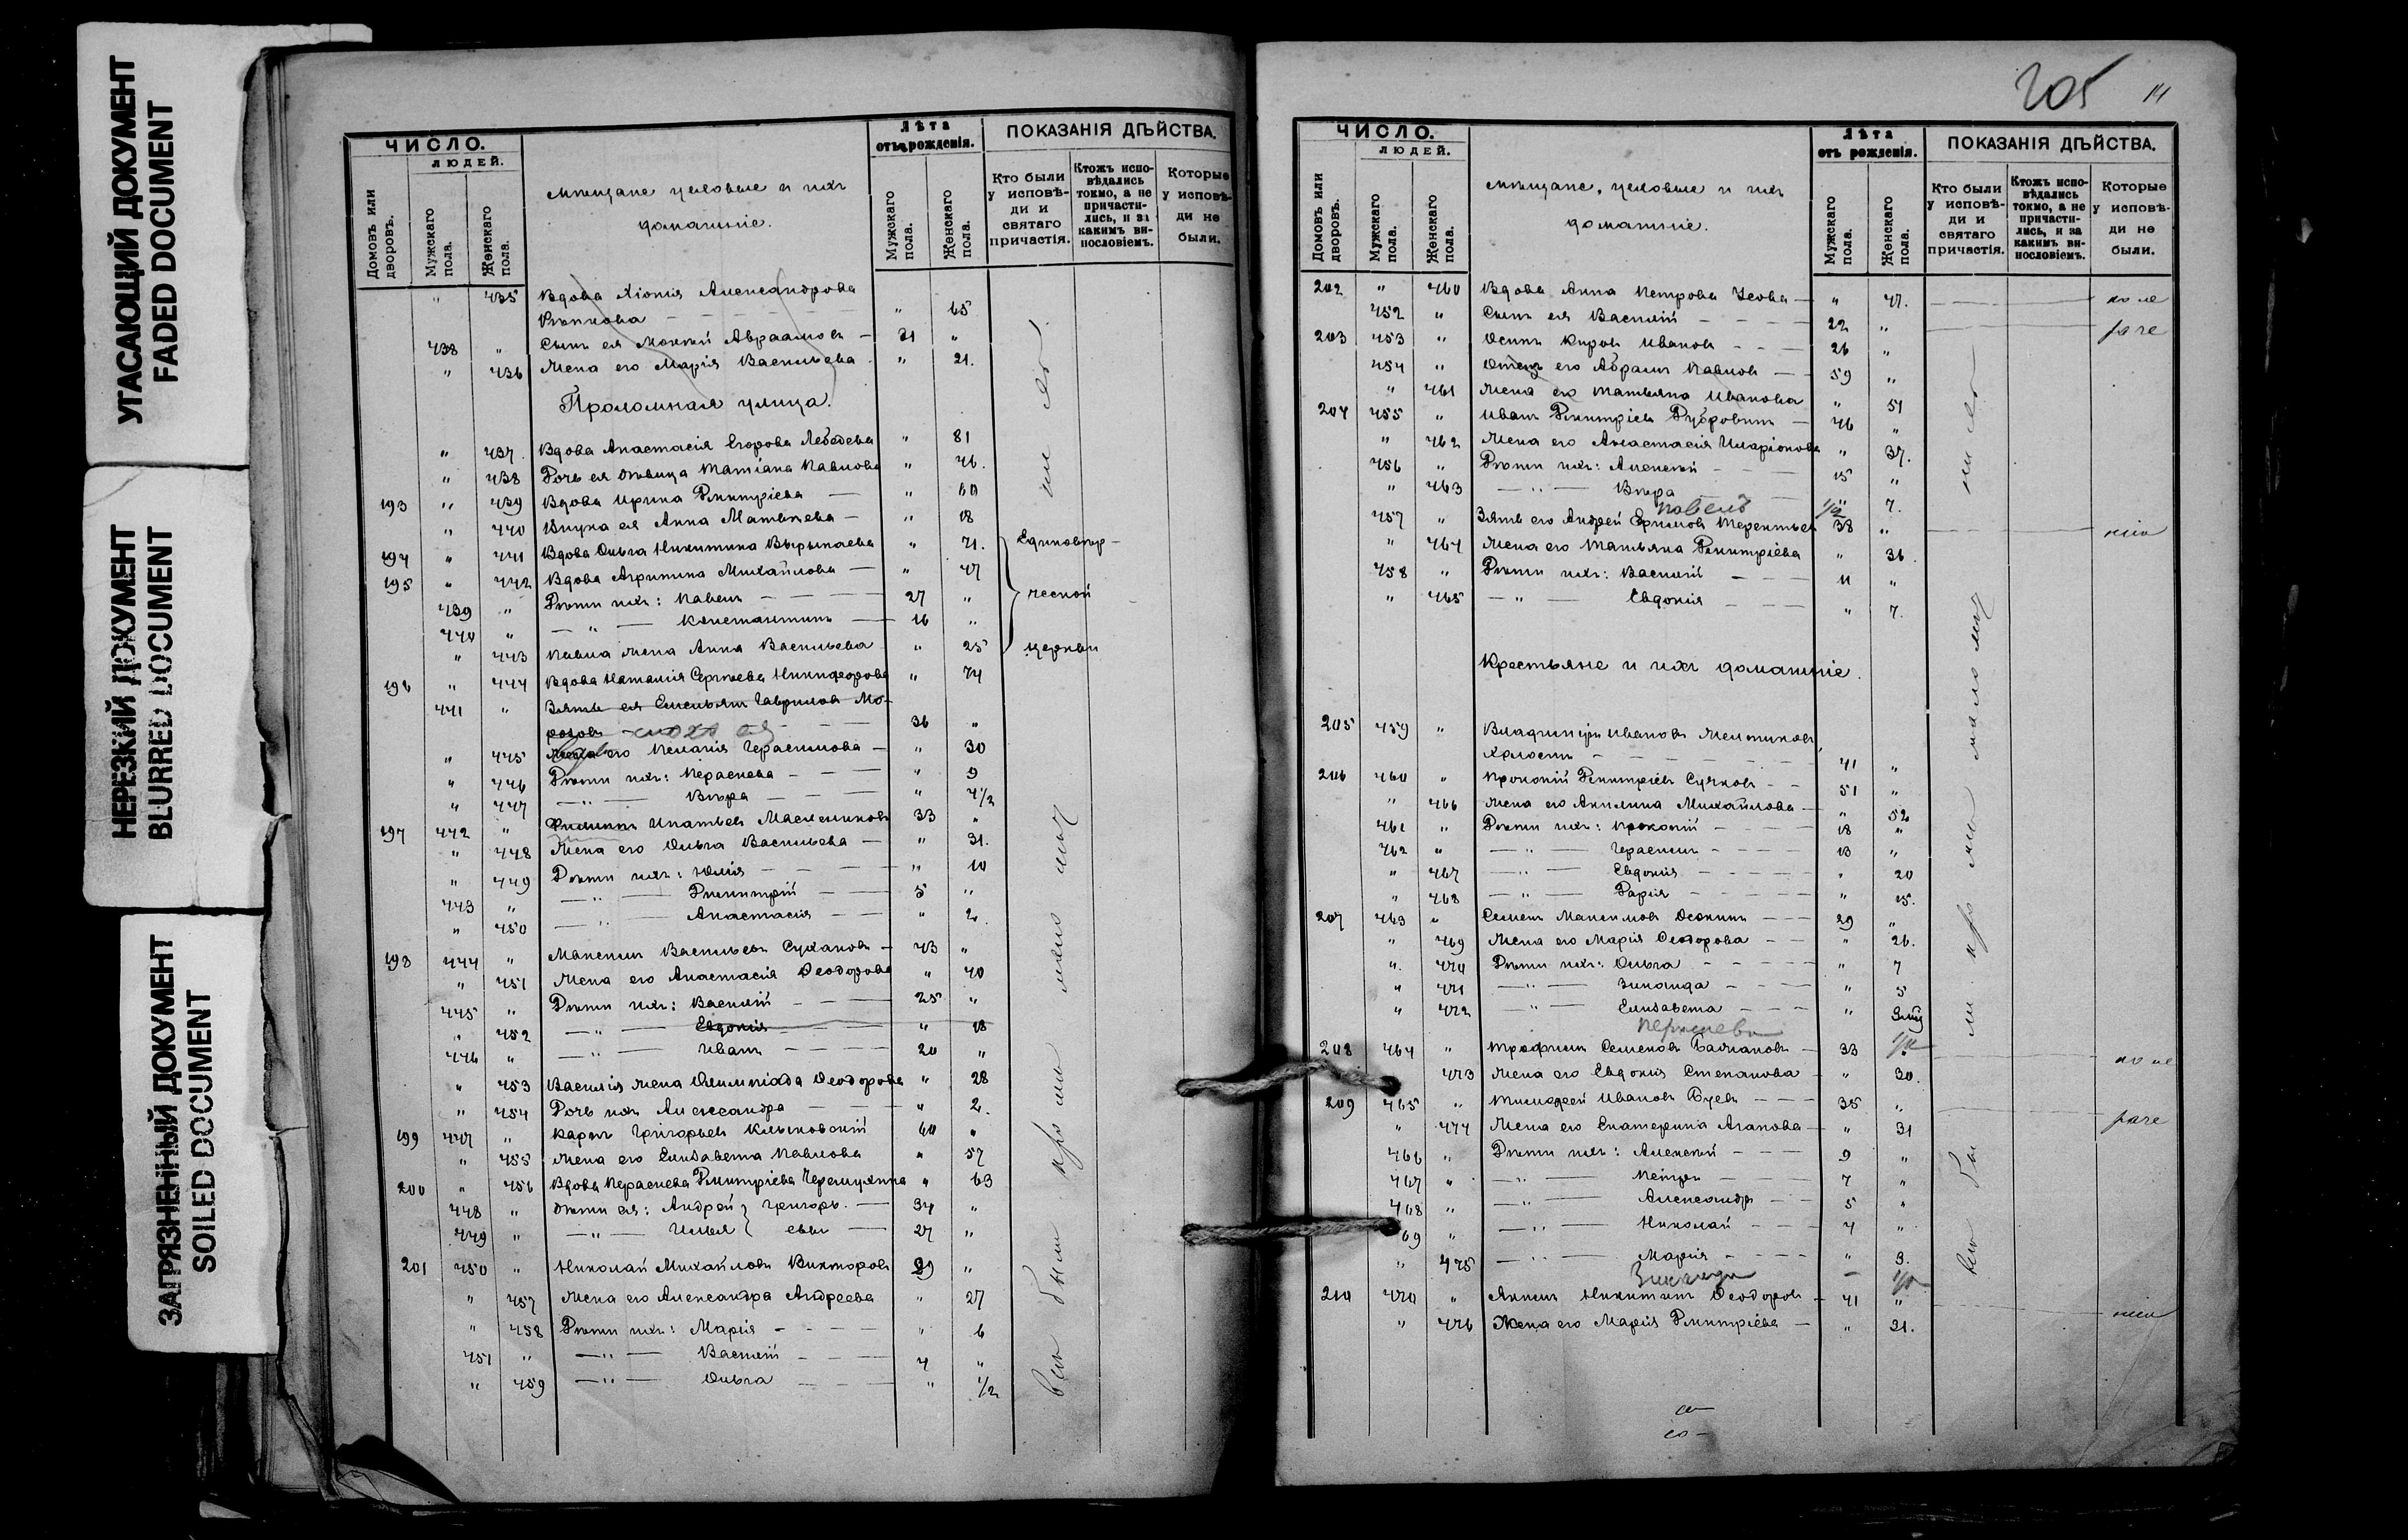 УГАСАЮЩИЙ ДОКУМЕНТ
FADED DOCUMENT
НЕРЕЗКИЙ ДОКУМЕНТ
BLURRED DOCUMENT
ЗАГРЯЗНЕННЫЙ ДОКУМЕНТ
SOILED DOCUMENT
ЧИСЛО.
ЛЮДЕЙ.
Домовъ или дворовъ.
Мужскаго пола.
Женскаго пола.
Мѣщане цеховые и ихъ
домашніе.
Лѣта
отъ рожденія.
Мужскаго пола.
Женскаго пола.
ПОКАЗАНІЯ ДѢЙСТВА.
Кто были у исповѣди и святаго причастія.
Ктожъ исповѣдались токмо, а не причастились, и за какимъ винословіемъ.
Которые у исповѣди не были.
" 435 Вдова Хіонія Александрова
" 65
438 " Сынъ ея Авраамовъ 31 "
" 436 Жена его Марія Васильева " 21.
Проломная улица.
" 437. Вдова Анастасія Егорова Лебедева " 81
" 438 Дочь ея дѣвица Татіана Павлова " 46.
193 " 439 Вдова Ирина Димитріева " 60
" 440 Внука ея Анна Матвѣева " 18
194 " 441 Вдова Ольга Никитина Вырыпаева " 71. Единовѣр-
195 " 442 Вдова Агрипина Михайлова " 47
439 " Дѣти ихъ: Павелъ 27 " ческой
440 " Константинъ 16 "
" 443 Павла жена Анна Васильева " 25 церкви
196 " 444 Вдова Наталія Сергѣева Никифорова " 74
441 " Зять ея Емельянъ Гавриловъ Мо-
розовъ 36 "
" 445 его Меланія Герасимова " 30
" 446 Дѣти ихъ: Пераскева " 9
" 447 Вѣра " 4 1/2
197 442 " Филиппъ Ипатьевъ Масленниковъ 33 "
" 448 Жена его Ольга Васильева " 31.
" 449 Дѣти ихъ: Юлія " 10
443 " Димитрій 5 "
" 450 Анастасія " 2.
198 444 " Максимъ Васильевъ Сухановъ 43 "
" 451 Жена его Анастасія Ѳеодорова " 40
445 " Дѣти ихъ: Василій 25 "
" 452 Евдокія " 18
446 " Иванъ 20 "
" 453 Василія жена Олимпіада Ѳеодорова " 28
" 454 Дочь ихъ Александра " 2.
199 447 " Карпъ Григорьевъ Клыковскій 60 "
" 455 Жена его Елизавета Павлова " 57
200 " 456 Вдова Пераскева Димитріева Черемухина " 63
448 " Дѣти ея: Андрей Григорь- 34 "
449 " Илья евы 27 "
201 450 " Николай Михайловъ Викторовъ 29 "
" 457 Жена его Александра Андреева " 27
" 458 Дѣти ихъ: Марія " 6
451 " Василій 4 "
" 459 Ольга " 1/2
205 14
ЧИСЛО.
ЛЮДЕЙ.
Домовъ или дворовъ.
Мужскаго пола.
Женскаго пола.
Мѣщане, цеховые и ихъ
домашніе.
Лѣта
отъ рожденія.
Мужскаго пола.
Женскаго пола.
ПОКАЗАНІЯ ДѢЙСТВА.
Кто были у исповѣди и святаго причастія.
Ктожъ исповѣдались токмо, а не причастились, и за какимъ винословіемъ.
Которые у исповѣди не были.
202 " 460 Вдова Анна Петрова " 47.
452 " Сынъ ея Василій 22 "
203 453 " Осипъ Ивановъ 26 "
454 " Отецъ его Абрамъ Павловъ 59 "
" 461 Жена его Татьяна Иванова " 51
204 455 " Иванъ Димитріевъ Дубровинъ 46 "
" 462 Жена его Анастасія Иларіонова " 37.
456 " Дѣти ихъ: Алексѣй 15 "
" 463 Вѣра " 7.
Павелъ 1/2
457 " Зять его Андрей Ефимовъ Терентьев 38 "
" 464 Жена его Татьяна Димитріева " 36
458 " Дѣти ихъ: Василій 11 "
" 465 Евдокія " 7.
Крестьяне и ихъ домашніе.
205 459 " Владиміръ Ивановъ Мельниковъ,
холостъ 41 "
206 460 " Прокопій Димитріевъ Сучковъ 51 "
" 466 Жена его Акилина Михайлова " 52
461 " Дѣти ихъ: Прокопій 18 "
462 " Герасимъ 13 "
" 467 Евдокія " 20
" 468 Дарія " 15.
207 463 " Семенъ Максимовъ Осокинъ 29 "
" 469 Жена его Марія Ѳеодорова " 26.
" 470 Дѣти ихъ: Ольга " 7
" 471 Зинаида " 5
" 472 Елизавета "
208 464 " Трофимъ Семеновъ 33 "
473 Жена его Евдокія Степанова " 30.
209 465 " Тимофей Ивановъ 35 "
" 474 Жена его Екатерина Агапова " 31
466 " Дѣти ихъ: Алексѣй 9 "
467 " Петръ 7 "
468 " Александръ 5 "
69 " Николай 4 "
" 475 Марія " 3.
Зинаида
210 470 " Никитинъ Ѳеодоровъ 41 "
" 476 Жена его Марія Димитріева " 31.